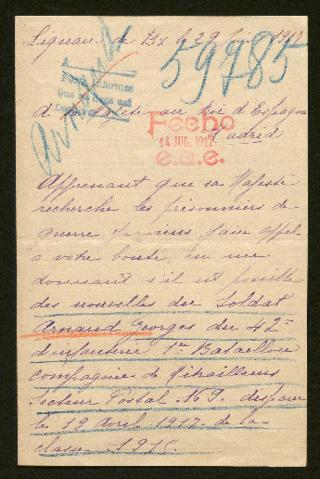 de Bx le 29 1917
59785
Armand
A
Para informes
Que se hace así
A sa Majesté au Roi d'Espagne
Madrid
Fecho
14 JUL. 1917
e.a.e.
Apprenant que sa Majesté
recherche les prisonniers de
guerre je viens faire appel
a votre bonté, en me
donnant s'il est possible
des nouvelles du Soldat
Arnaud Georges du 42e
d'infanterie 1er Bataillon
Compagnie de Mitrailleuses
secteur Postal No 9. disparu
le 19 Avril 1917 de la
classe 1915.